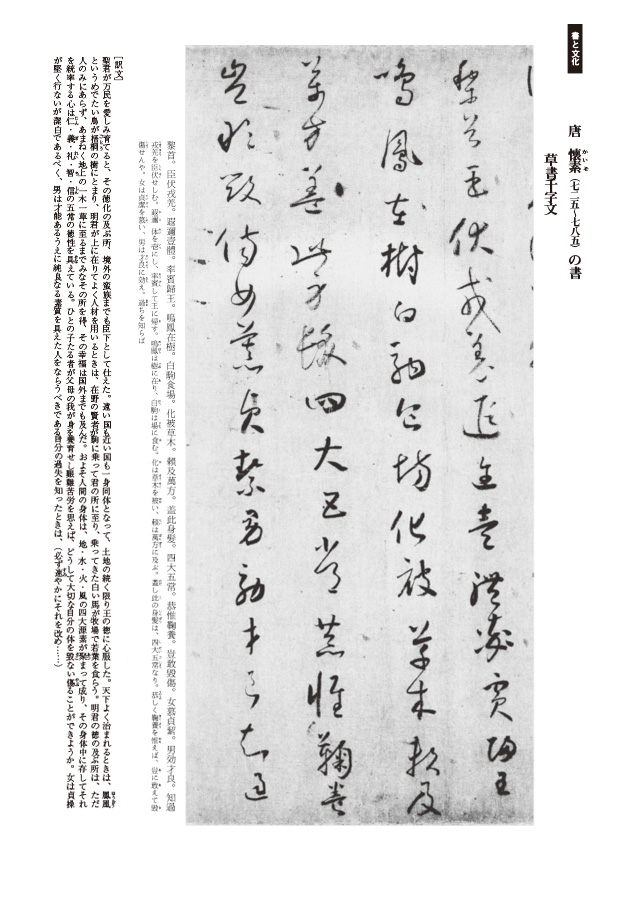 書と文化
唐 懐素（七二五〜七八五）の書
草書千字文
黎首臣伏戎羌遐迩壹体率賓帰王
鳴鳳在樹白駒食場化被草木頼及
萬方蓋此身髪四大五常恭惟鞠養
豈敢毀傷女慕貞絜男効才良知過
黎首。臣伏戎羌。遐邇壹體。率賓歸王。鳴鳳在樹。白駒食場。化被草木。賴及萬方。蓋此身髮。四大五常。恭惟鞠養。豈敢毀傷。女慕貞絜。男効才良。知過
戎羌を臣伏せしむ。遐邇 体を壱にし、率賓して王に帰す。鳴鳳は樹に在り、白駒は場に食む。化は草木を被い、頼は萬方に及ぶ。蓋し此の身髪は、四大五常なり。恭しく鞠養を惟えば、豈に敢えて毀
傷せんや。女は貞潔を慕い、男は才良に効え。過ちを知らば
［訳文］
聖君が万民を愛しみ育てると、その徳化の及ぶ所、境外の蛮族までも臣下として仕えた。遠い国も近い国も一身同体となって、土地の続く限り王の徳に心服した。天下よく治まれるときは、鳳凰
というめでたい鳥が梧桐の樹にとまり、明君が上に在りてよく人材を用いるときは、在野の賢者が駒に乗って君の所に至り、乗ってきた白い馬が牧場で若葉を食らう。明君の徳の及ぶ所は、ただ
人のみにあらず、あまねく地上の一木一草に至るまでみなその所を得、その幸福は国外までも及んだ。およそ人間の身体は、地・水・火・風の四大源素が集まって成り、その身体中に存してそれ
を統率する心は仁・義・礼・智・信の五常の徳性を具えている。ひとの子たる者が父母の我が身を養育せし艱難苦労を思えば、どうして大切な自分の体を毀ない傷ることができようか。女は貞操
が堅く行ないが潔白であるべく、男は才能あるうえに純良なる素質を具えた人をならうべきである自分の過失を知ったときは、（必ず速やかにそれを改め……）